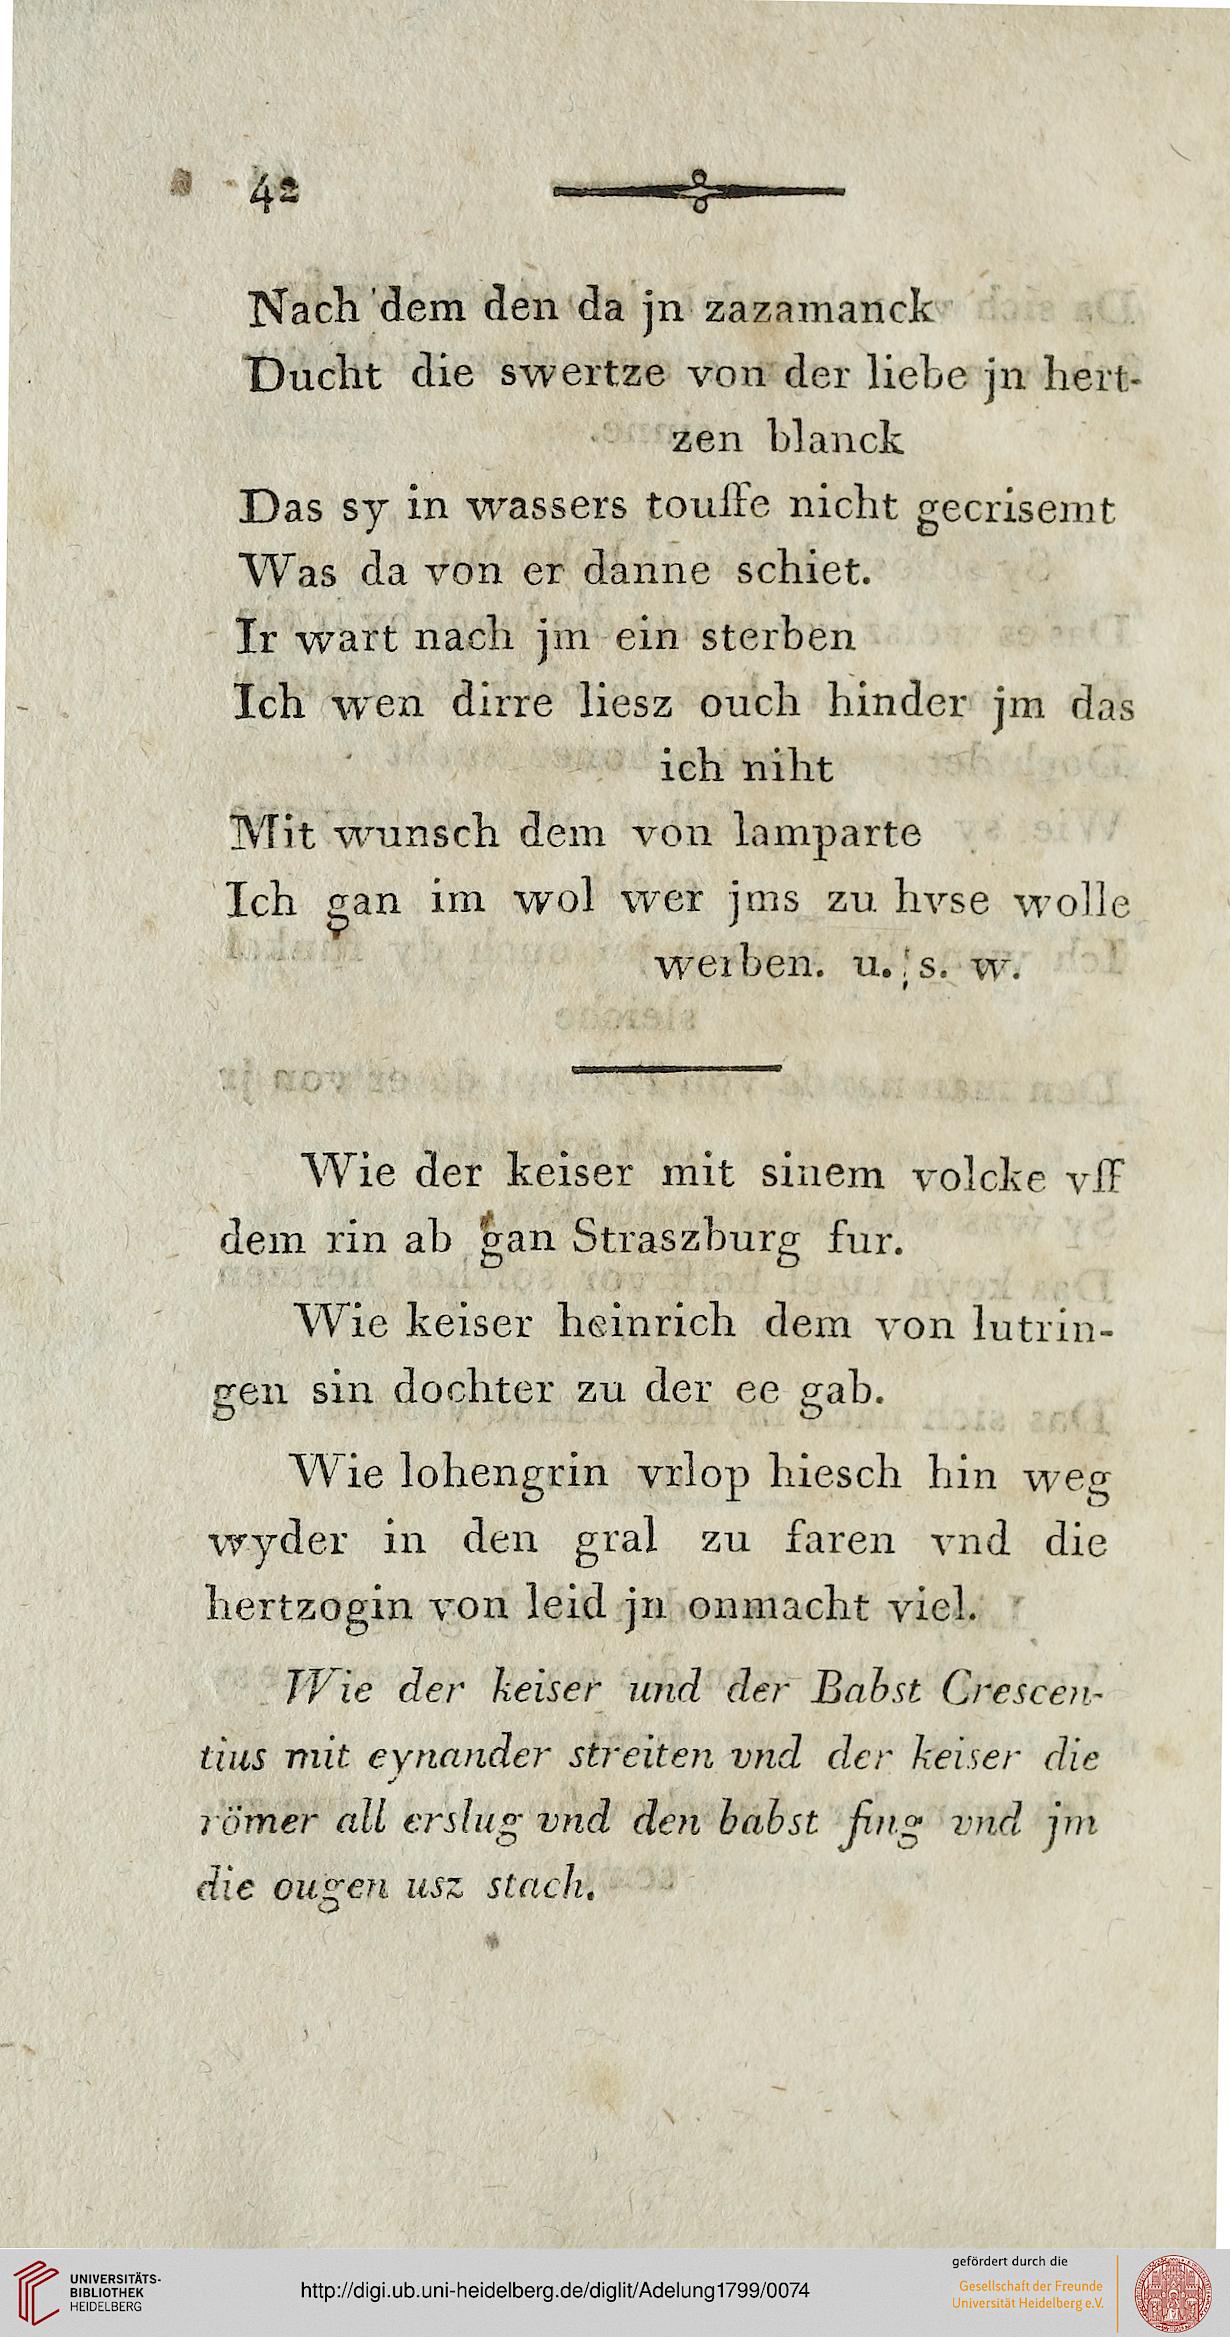 42
Nach dem den da jn zazamanck
Ducht die swertze von der liebe jn hert-
zen blanck
Das sy in wassers touffe nicht gecrisemt
Was da von er danne schiet.
Ir wart nach jm ein sterben
Ich wen dirre liesz ouch hinder jm das
ich niht
Mit wunsch dem von lamparte
Ich gan im wol wer jms zu hvse wolle
werben. u. s. w.
Wie der keiser mit sinem volcke vff
dem rin ab gan Straszburg fur.
Wie keiser heinrich dem von lutrin-
gen sin dochter zu der ee gab.
Wie lohengrin vrlop hiesch hin weg
wyder in den gral zu faren vnd die
hertzogin von leid jn onmacht viel.
Wie der keiser und der Babst Crescen-
tius mit eynander streiten vnd der keiser die
römer all erslug vnd den babst fing vnd jm
die ougen usz stach.
UNIVERSITÄTS-
BIBLIOTHEK
HEIDELBERG
http://digi.ub.uni-heidelberg.de/diglit/Adelung1799/0074
gefördert durch die
Gesellschaft der Freunde
Universität Heidelberg e.V.